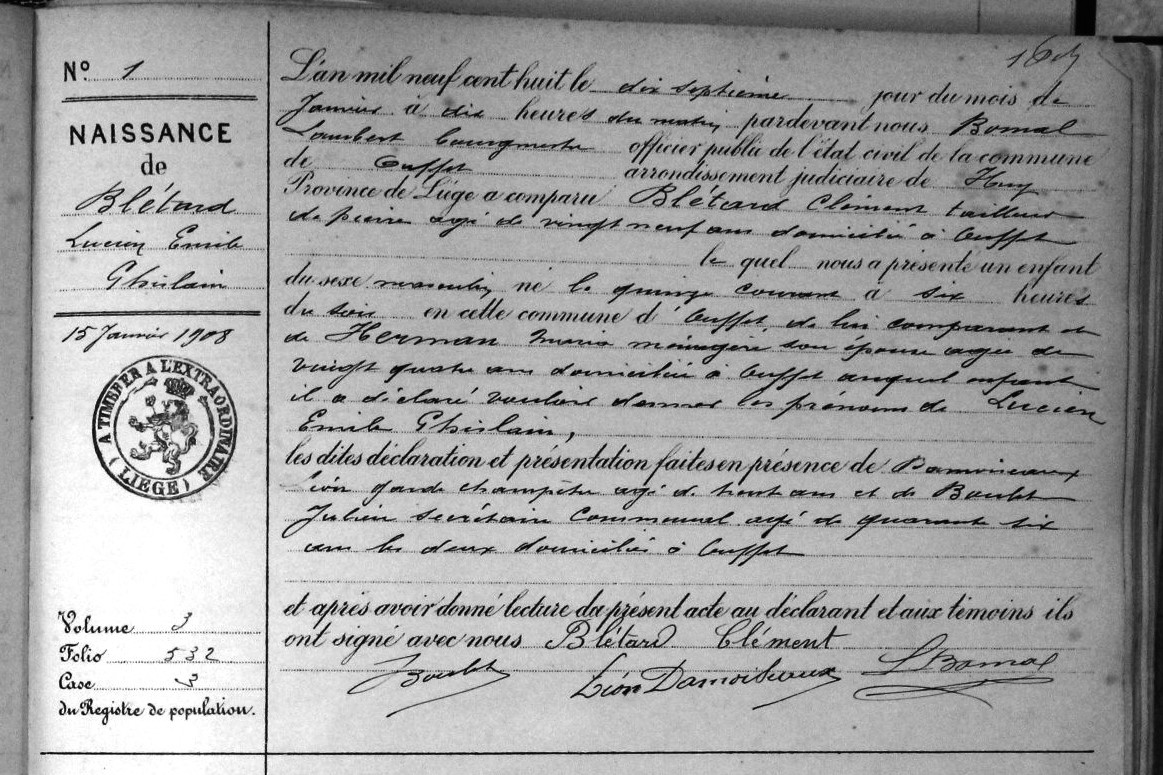 Nº 1
NAISSANCE
de
Blétard
Lucien Emile
Ghislain
15 Janvier 1908
A TIMBRER A L'EXTRAORDINAIRE
(LIEGE)
Volume 3
Folio 532
Case 3
du Registre de population.
L'an mil neuf cent huit le dix septième jour du mois de
Janvier à dix heures du matin pardevant nous Bomal
Lambert bourgmestre officier public de l'état civil de la commune
de Ouffet arrondissement judiciaire de Huy
Province de Liége a comparu Blétard Clément tailleur
de pierre agé de vingt neuf ans domicilié à Ouffet
le quel nous a présenté un enfant
du sexe masculin né le quinze courant à six heures
du soir en cette commune d'Ouffet, de lui comparant et
de Herman Maria ménagère son épouse agée de
vingt quatre ans domiciliée à Ouffet auquel enfant
il a déclaré vouloir donner les prénoms de Lucien
Emile Ghislain,
les dites déclaration et présentation faites en présence de Damoiseaux
Léon garde champêtre agé de trente ans et de Boulet
Julien secrétaire communal agé de quarante six
ans les deux domiciliés à Ouffet
et après avoir donné lecture du présent acte au déclarant et aux témoins ils
ont signé avec nous Blétard Clément
JBoulet Léon Damoiseaux LBomal